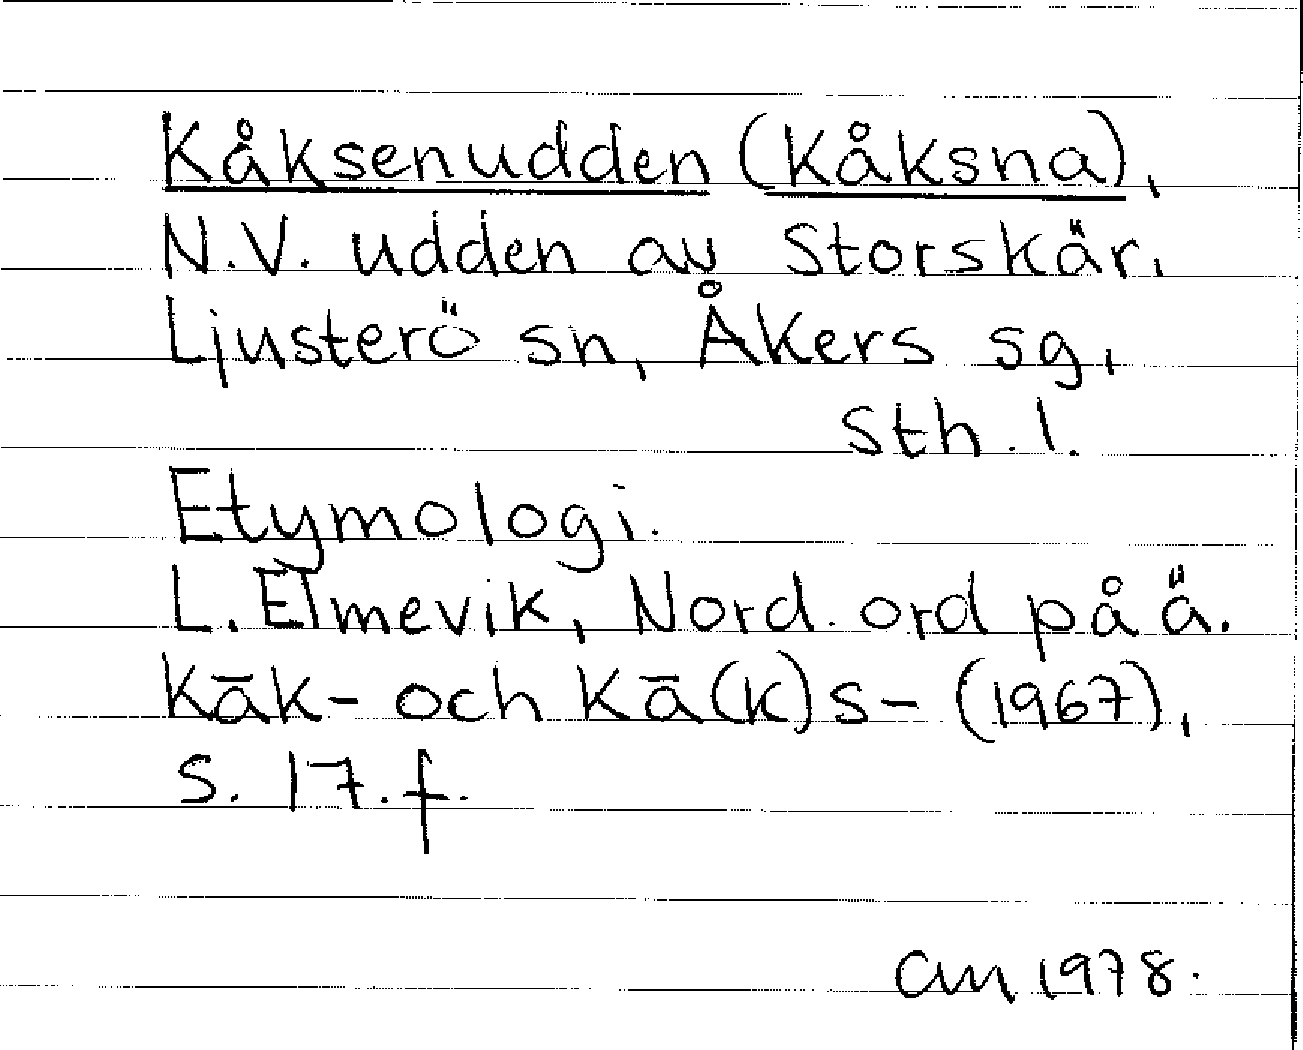 Kåksenudden (Kåksna),
N.V. udden av Storskär,
Ljusterö sn, Åkers sg,
Sth. l.
Etymologi.
L. Elmevik, Nord. ord på ä.
kāk- och kā(k)s- (1967),
s. 17. f.
am 1978.